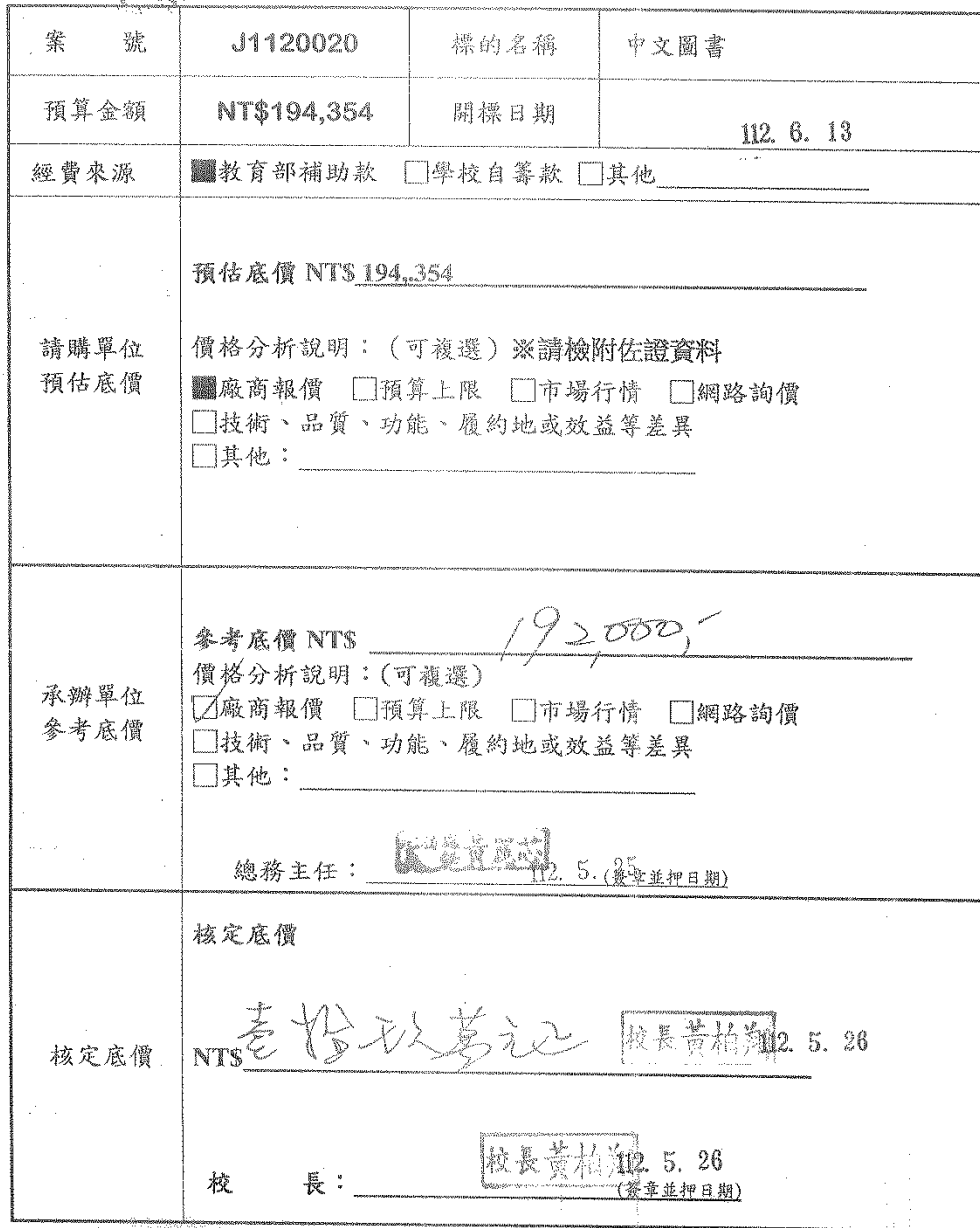 案 號 J1120020 標的名稱 中文圖書
預算金額 NT$194,354 開標日期 112. 6. 13
經費來源 ■教育部補助款 □學校自籌款 □其他
預估底價 NT$ 194,.354
請購單位
預估底價
價格分析說明：（可複選）※請檢附佐證資料
■廠商報價 □預算上限 □市場行情 □網路詢價
□技術、品質、功能、履約地或效益等差異
□其他：
參考底價 NT$ 192,000,-
承辦單位
參考底價
價格分析說明：(可複選)
☑廠商報價 □預算上限 □市場行情 □網路詢價
□技術、品質、功能、履約地或效益等差異
□其他：
總務主任： 112. 5. 25 (簽章並押日期)
核定底價
核定底價
NT$ 壹拾玖萬元正 校長黃柏翔 112. 5. 26
校 長： 校長黃柏翔 112. 5. 26
(簽章並押日期)